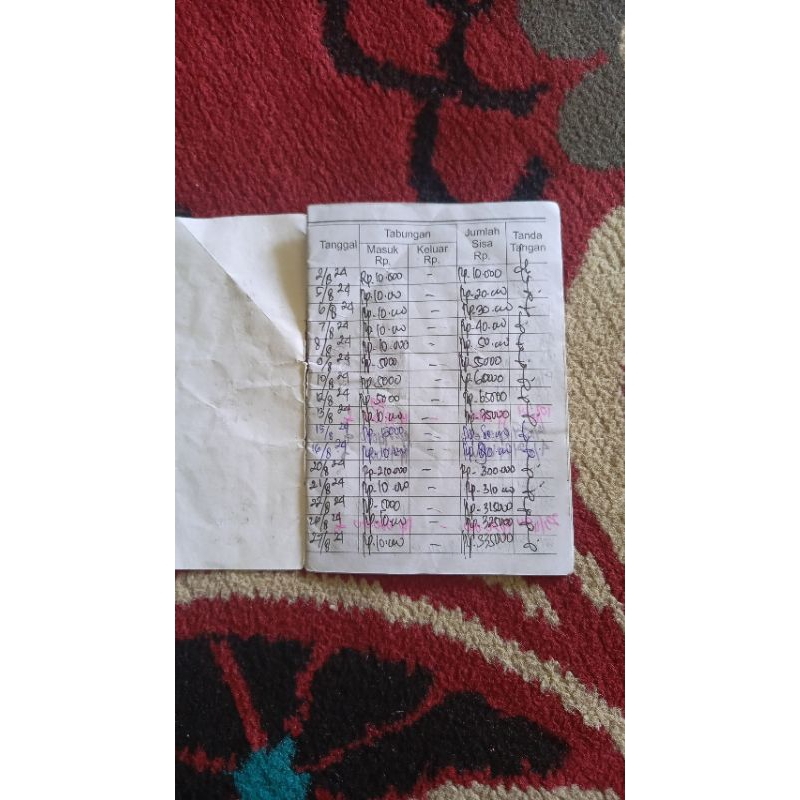 Tanggal Tabungan Jumlah Sisa Rp. Tanda Tangan
Masuk Rp. Keluar Rp.
2/8 24 Rp. 10.000 - Rp. 10.000
5/8 24 Rp. 10.00 - Rp. 20.000
6/8 24 Rp. 10.000 - Rp. 30.000
7/8 24 Rp. 10.000 - Rp. 40.000
8/8 24 Rp. 10.000 - Rp. 50.000
9/8 24 Rp. 5000 - Rp. 55000
10/8 24 Rp. 5000 - Rp. 60000
12/8 24 Rp. 5000 - Rp. 65000
13/8 24 Rp. 10.000 - Rp. 75000
15/8 24 Rp. 5000 -
16/8 24 Rp. 10.000 -
20/8 24 Rp. 210.000 - Rp. 300.000
21/8 24 Rp. 10.000 - Rp. 310.000
22/8 24 Rp. 5000 - Rp. 315000
24 Rp. 10.000 - Rp. 325000
27/8 24 Rp. 10.000 - Rp. 335000